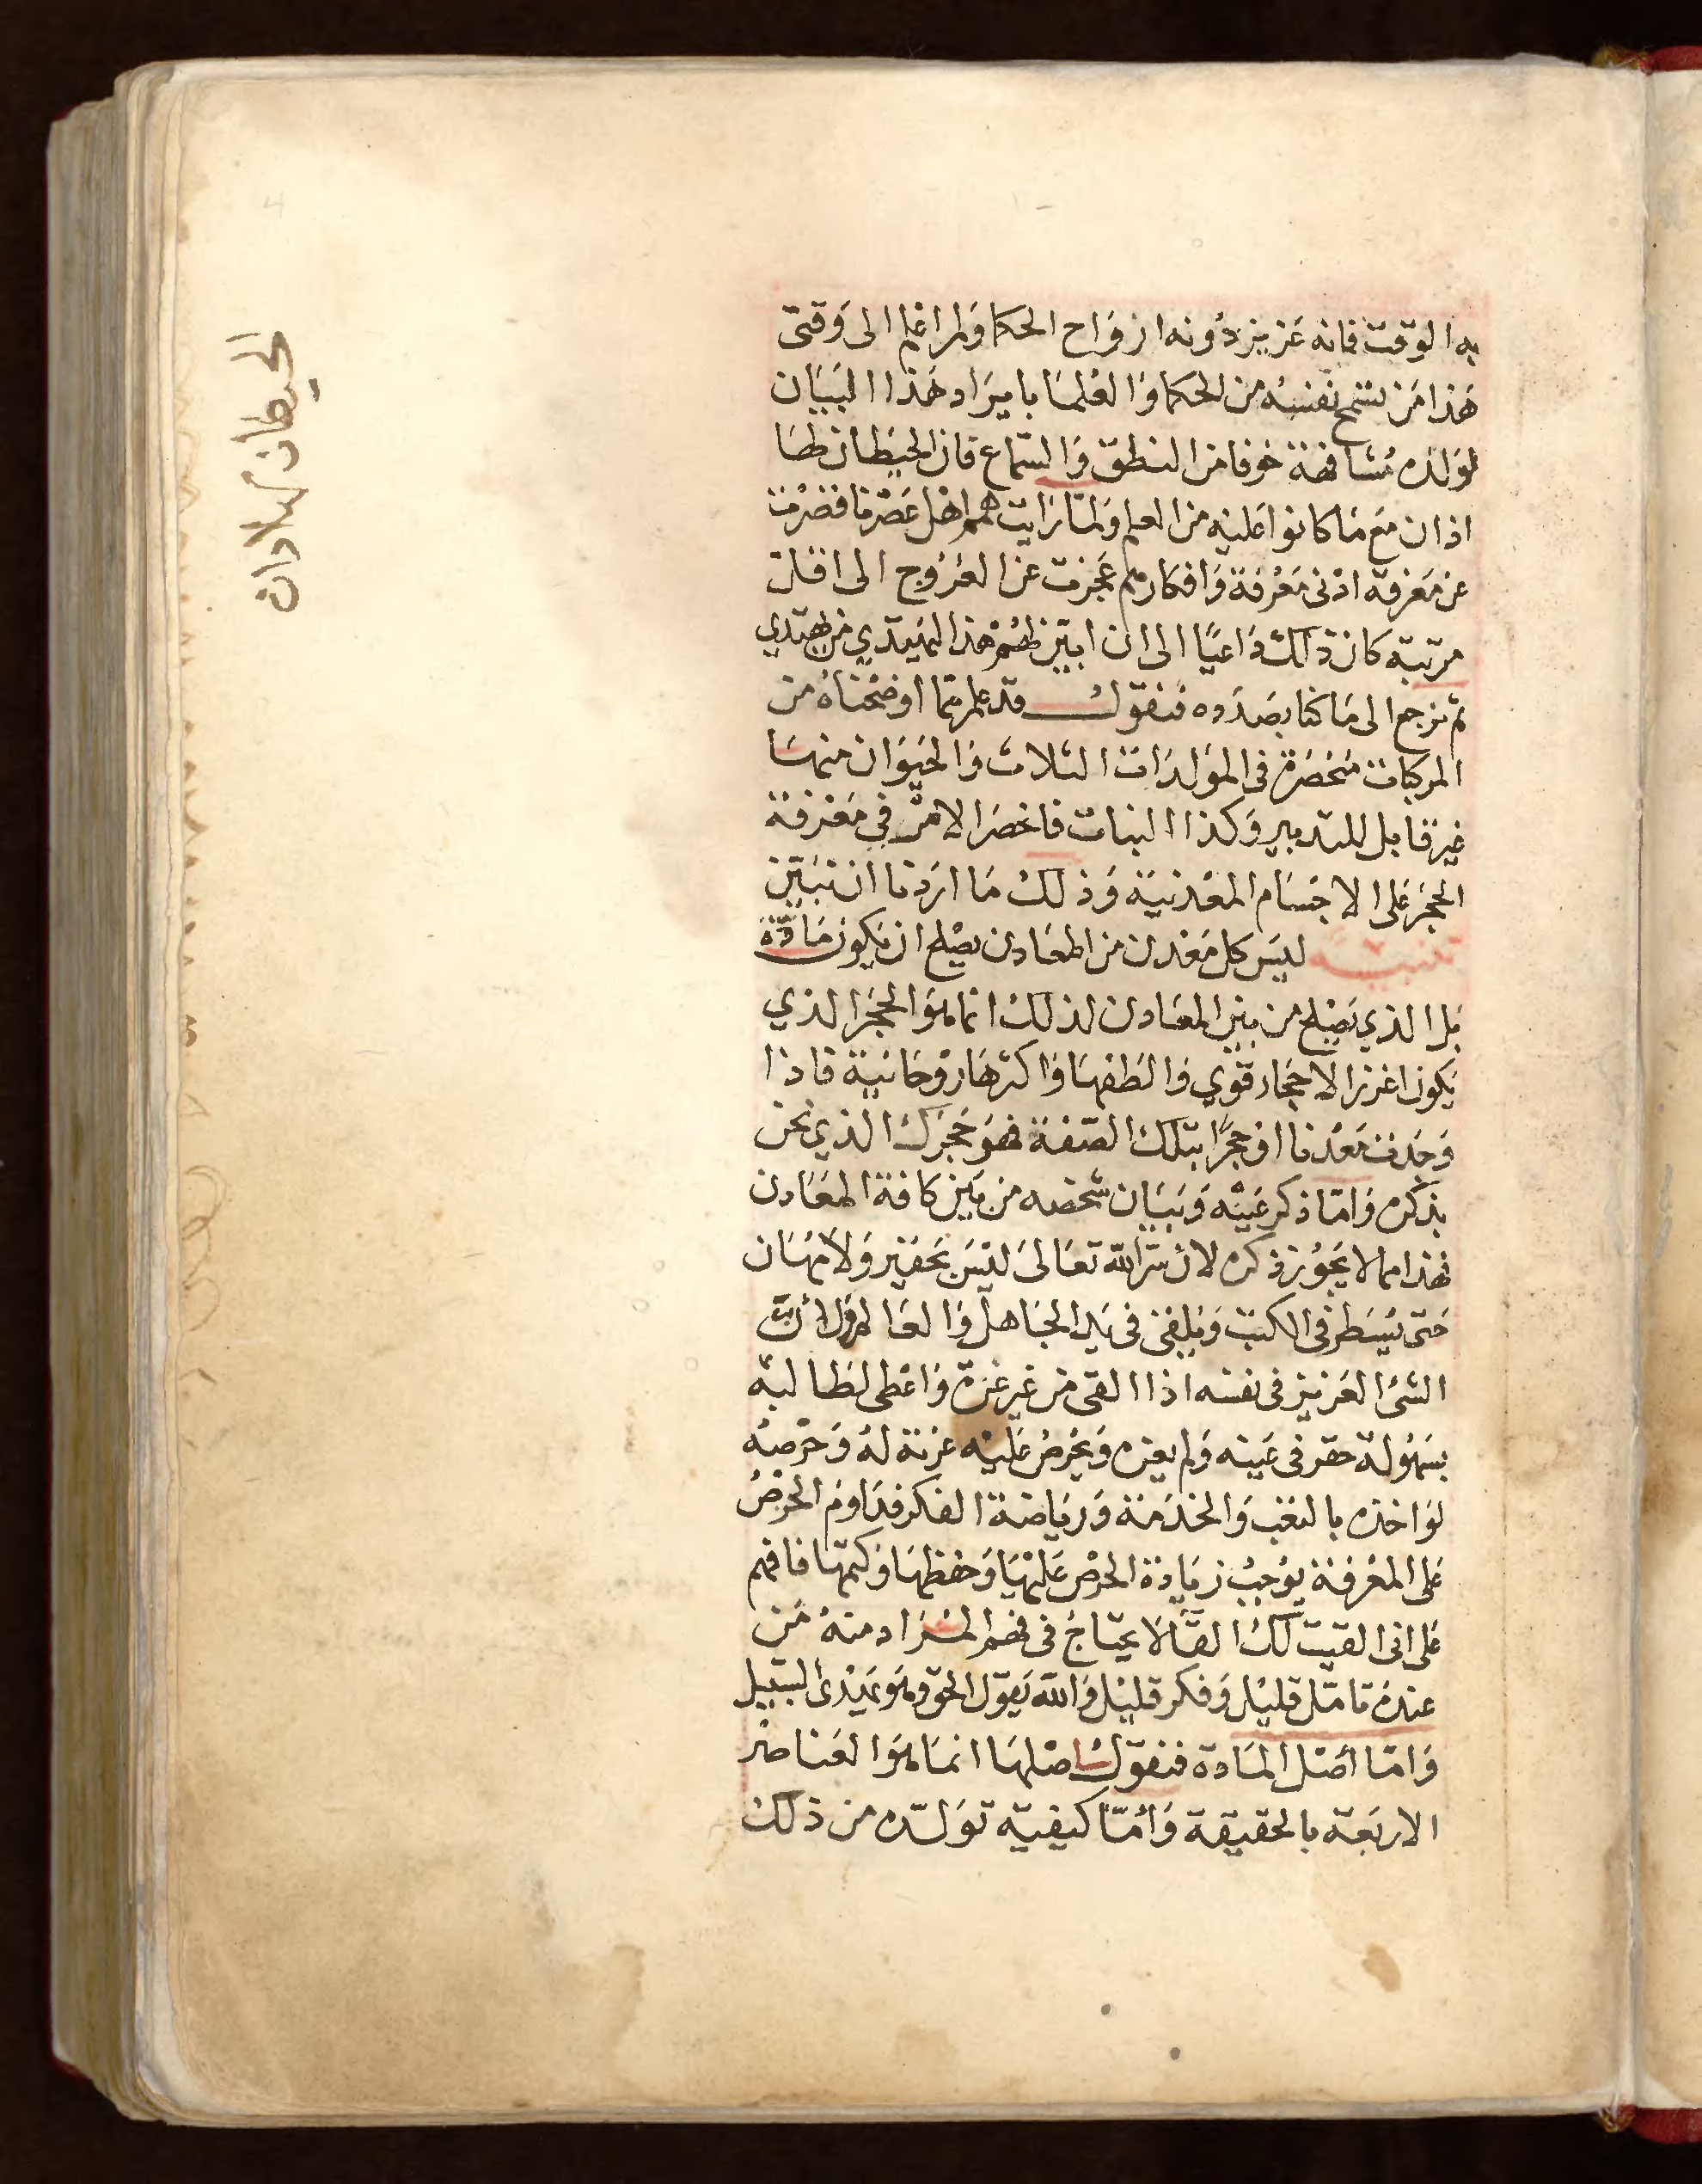 به الوقت فانه عزيز دونه ازواح الحكما ولم اعلم الى وقتى
هذا من تسمح نفسه من الحكما والعلما بايراد هذا البيان
لولده مشافهة خوفا من النطق والسماع فان الحيطان لها
اذان مع ما كانوا عليه من العلم ولما رايت همم اهل عصرنا قصرت
عن معرفة ادنى معرفة وافكارهم عجزت عن العروج الى اقل
مرتبة كان ذلك داعيًا الى ان ابين لهم هذا ليهتدي من يهتدي
ثم نرجع الى ما كنا بصدده فنقول قد علم مما اوضحناه من
المركبات منحصرة في المولدات الثلاث والحيوان منها
غير قابل للتدبير وكذا النبات فانحصر الامر في معرفة
الحجر على الاجسام المعدنية وذلك ما اردنا ان نبين
تنبيه ليس كل معدن من المعادن يصلح ان يكون مادّة
بل الذي يصلح من بين المعادن لذلك انما هو الحجر الذي
يكون اغزر الاحجار قوي والطفها واكثرها روحانية فاذا
وجدت معدنا او حجرًا بتلك الصفة فهو حجرك الذي نحن
بذكره واما ذكر عينه وبيان شخصه من بين كافة المعادن
فهذا مما لا يجوز ذكره لان سر الله تعالى ليس بحقير ولا مهان
حتى يسطر في الكتب ويلقى في يد الجاهل والعالم ولان
الشئ العزيز في نفسه اذا القى من غير عزة واعطى لطالبه
بسهولة حقر في عينه ولم يعزه ويحرص عليه عزته له وحرصه
لو اخذه بالتعب والخدمة ورياضة الفكر فداوم الحرص
على المعرفة يوجب زيادة الحرص عليها وحفظها وكتمها فافهم
على انى القيت لك القآ لا يحتاج في فهم المراد منه من
عنده تامل قليل وفكر قليل والله يقول الحق وهو يهدى السبيل
واما أصل المادة فنقول اصلها انما هو العناصر
الاربعة بالحقيقة وأما كيفية تولده من ذلك
الحيطان لها ادان